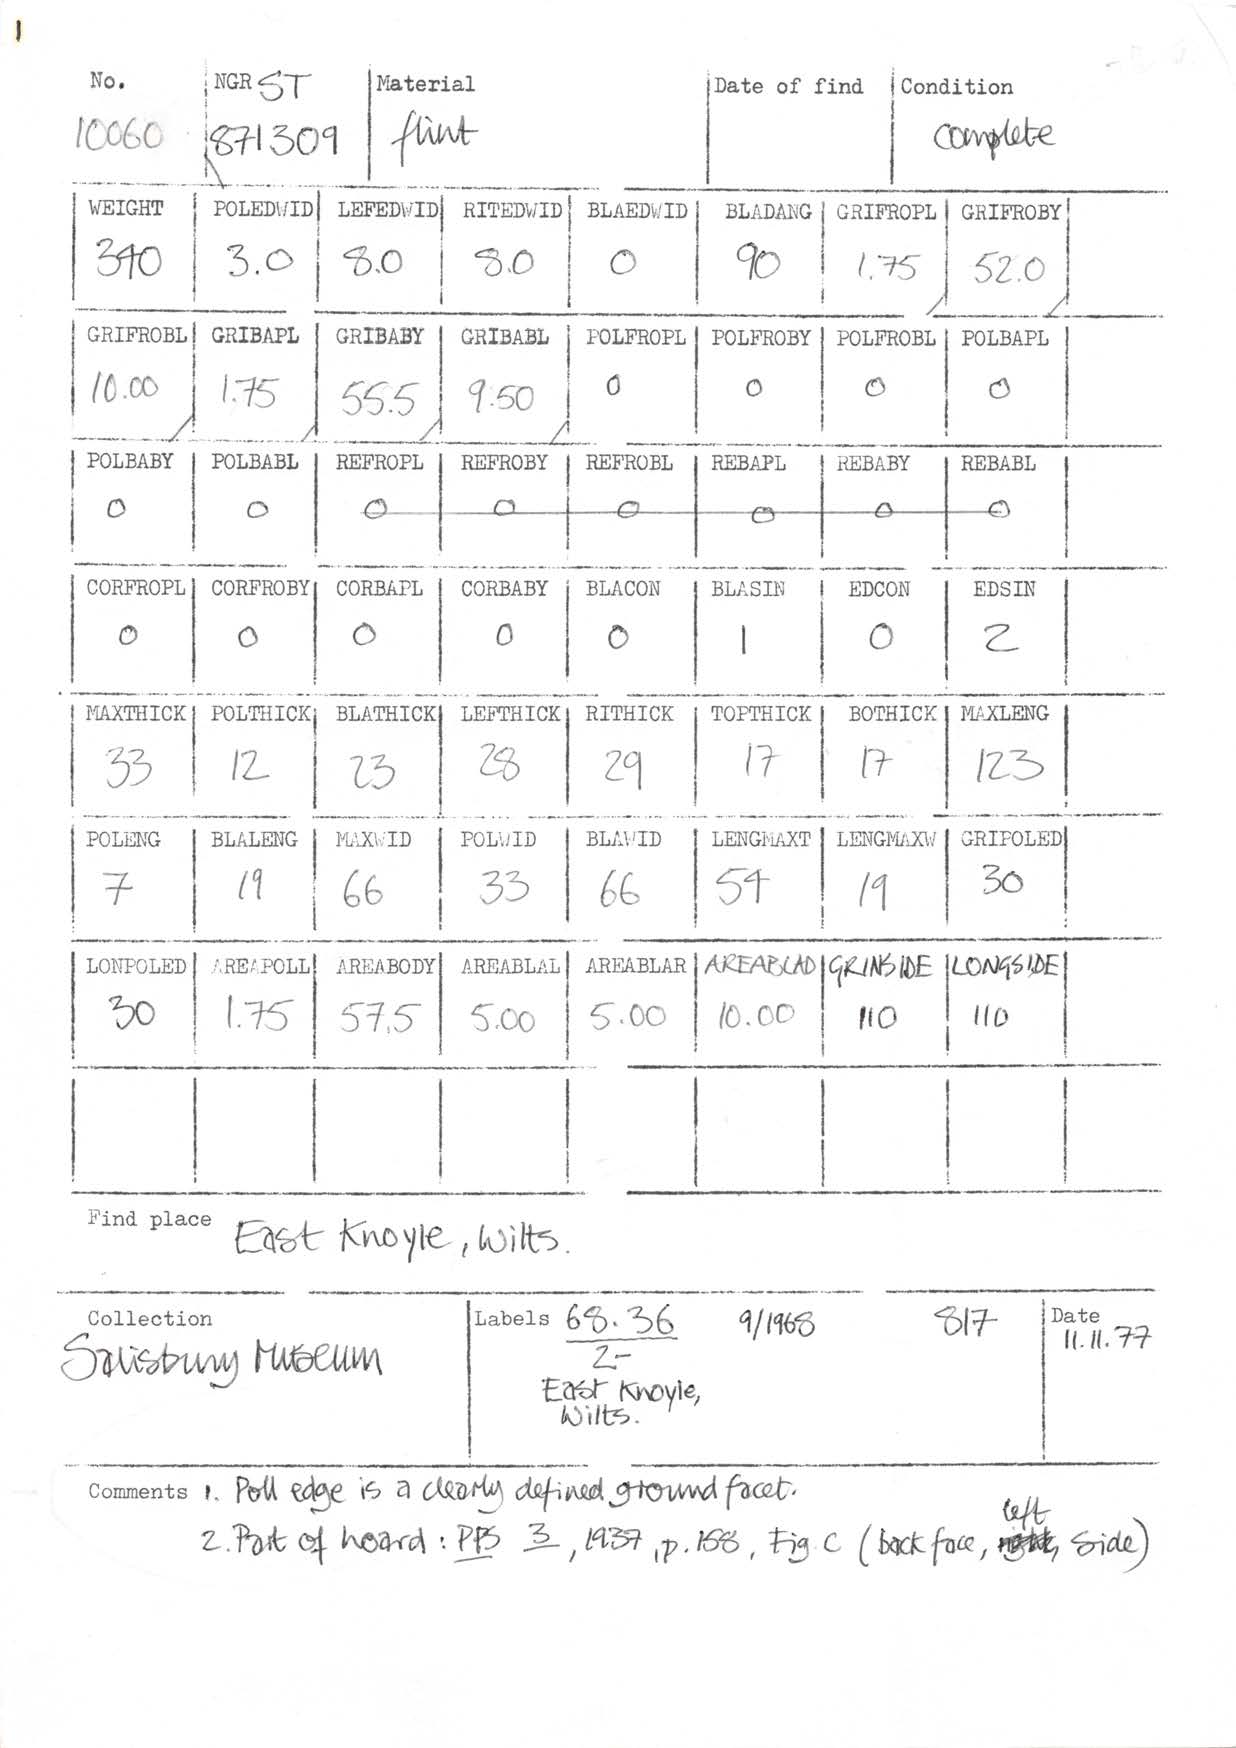 1
No. NGR ST Material Date of find Condition
10060 871309 flint complete
WEIGHT POLEDWID LEFEDWID RITEDWID BLAEDWID BLADANG GRIFROPL GRIFROBY
340 3.0 8.0 8.0 0 90 1.75 52.0
GRIFROBL GRIBAPL GRIBABY GRIBABL POLFROPL POLFROBY POLFROBL POLBAPL
10.00 1.75 55.5 9.50 0 0 0 0
POLBABY POLBABL REFROPL REFROBY REFROBL REBAPL REBABY REBABL
0 0 0 0 0 0 0 0
CORFROPL CORFROBY CORBAPL CORBABY BLACON BLASIN EDCON EDSIN
0 0 0 0 0 1 0 2
MAXTHICK POLTHICK BLATHICK LEFTHICK RITHICK TOPTHICK BOTHICK MAXLENG
33 12 23 28 29 17 17 123
POLENG BLALENG MAXWID POLWID BLAWID LENGMAXT LENGMAXW GRIPOLED
7 19 66 33 66 54 19 30
LONPOLED AREAPOLL AREABODY AREABLAL AREABLAR AREABLAD GRINSIDE LONGSIDE
30 1.75 57.5 5.00 5.00 10.00 110 110
Find place East Knoyle, Wilts.
Collection Labels 68.36 9/1968 817 Date
Salisbury Museum 2- 11.11.77
East Knoyle,
Wilts.
Comments 1. Poll edge is a clearly defined ground facet.
left
2. Part of hoard: PPS 3, 1937, p.158, Fig. C (back face, side)